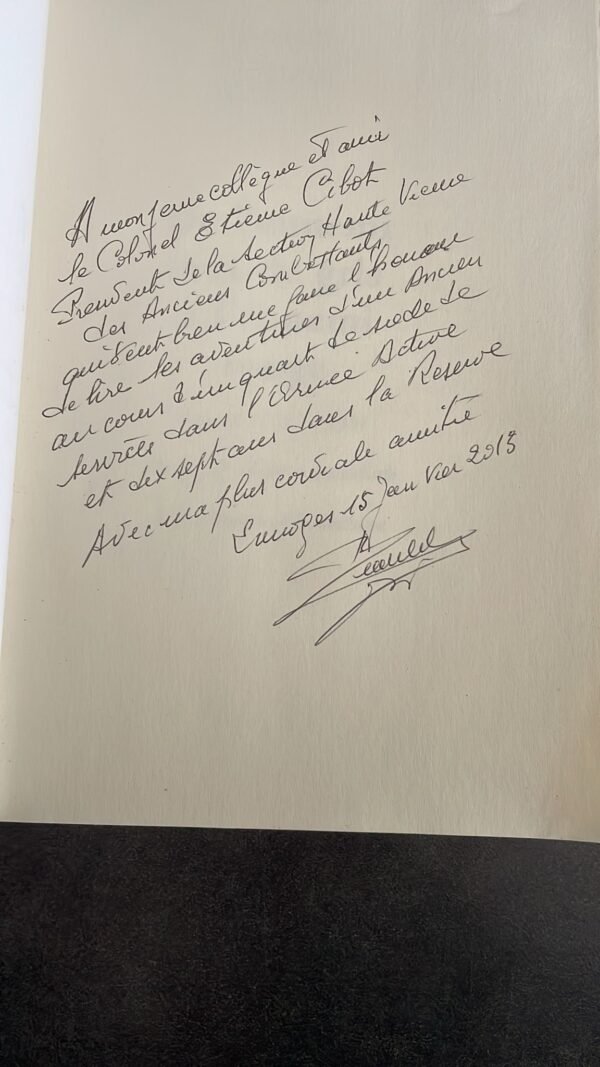 A mon jeune collègue et ami
le Colonel Etienne Cibot
President de la Section Haute Vienne
des Anciens Combattants
qui veut bien me faire l'honneur
de lire les aventures d'un Ancien
au cours d'un quart de siècle de
services dans l'Armée Active
et dix sept ans dans la Reserve
Avec ma plus cordiale amitié
Limoges 15 Janvier 2013